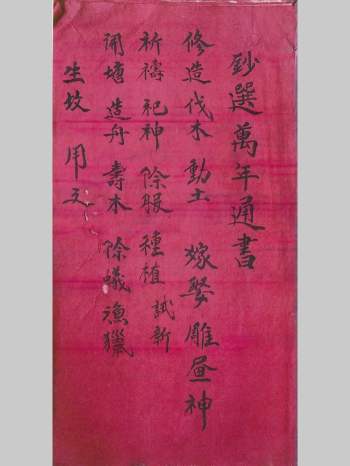 鈔選萬年通書
修造伐木動土 嫁娶雕昼神
祈禱祀神 除服 種植 試新
開塘 造舟 壽木 除蟻 漁獵
生坟 用文